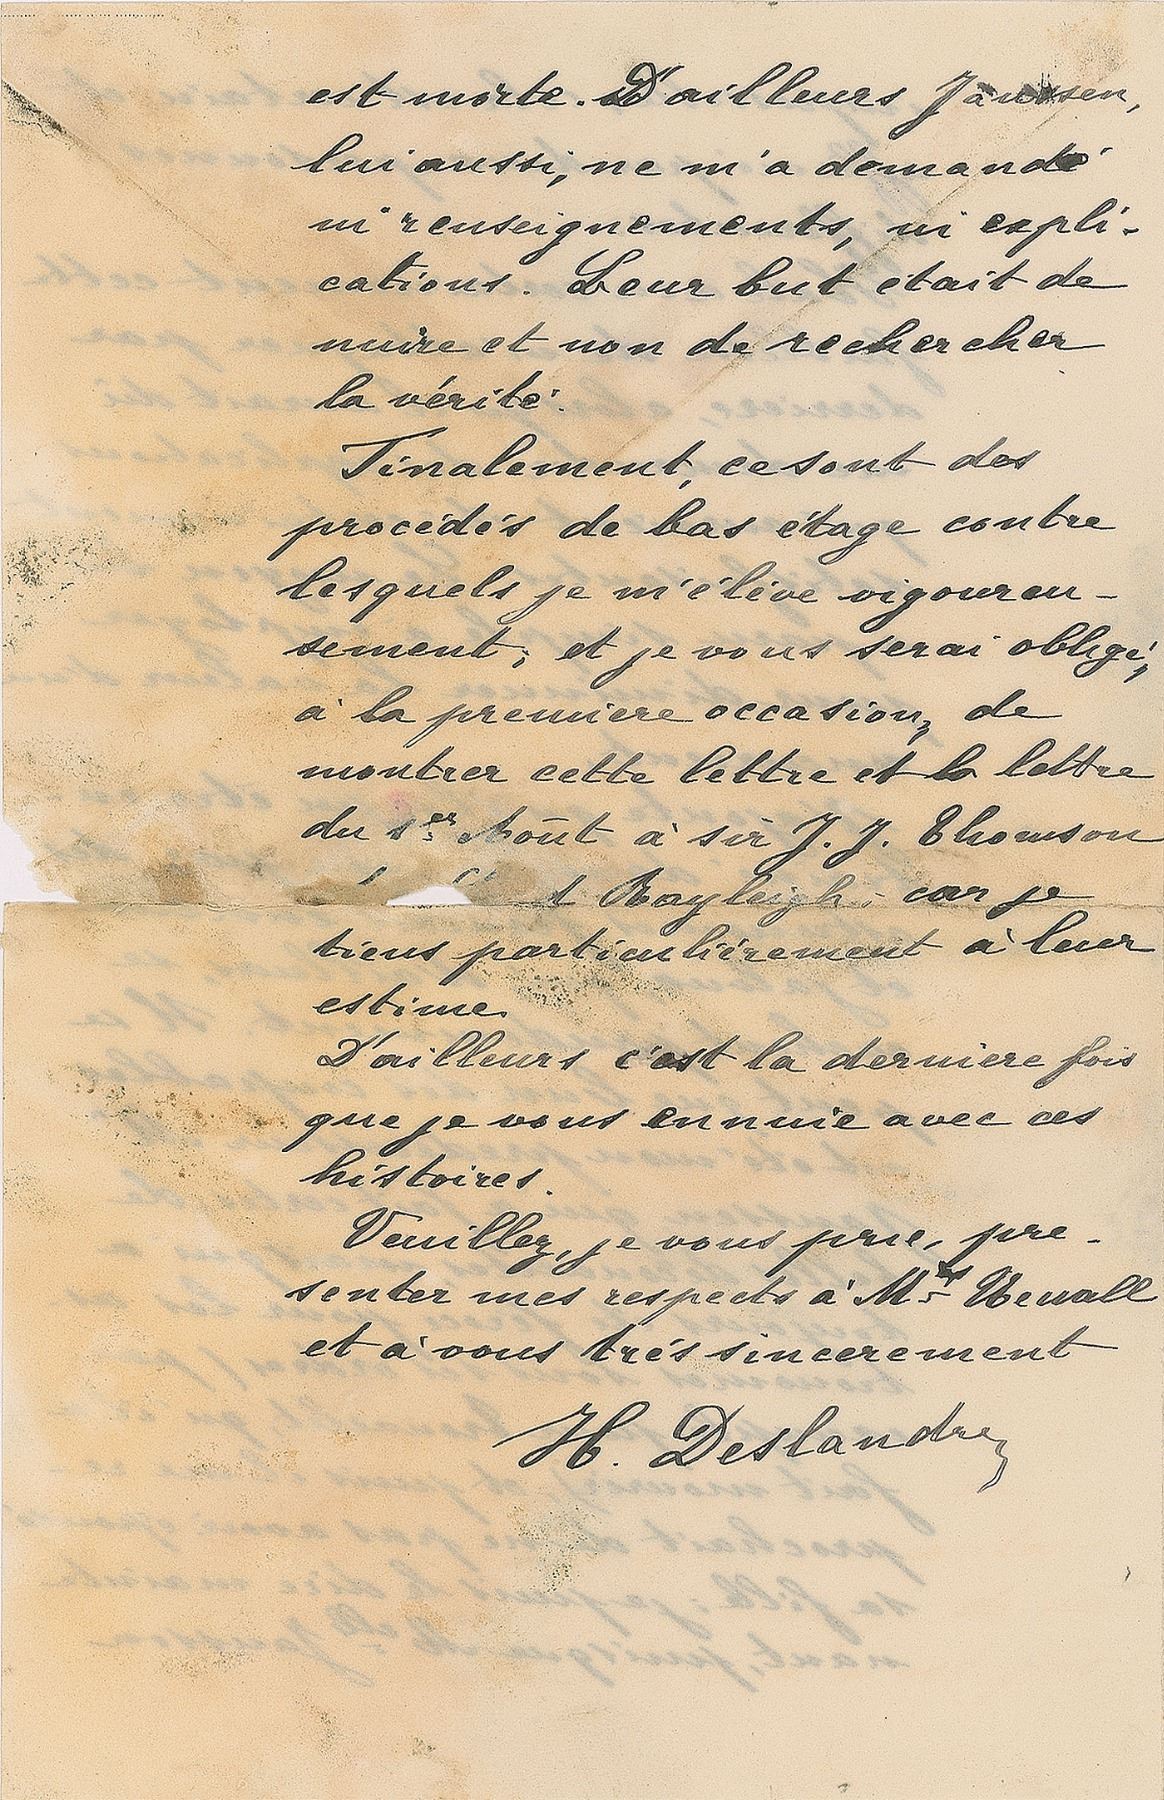 est morte. D'ailleurs Janssen,
lui aussi, ne m'a demandé
ni renseignements, ni expli-
cations. Leur but était de
nuire et non de rechercher
la vérité.
Finalement, ce sont des
procédés de bas étage contre
lesquels je m'élève vigoureu-
sement; et je vous serai obligé,
à la premiere occasion, de
montrer cette lettre et la lettre
du 1er Août à sir J. J. Thomson
Rayleigh; car je
tiens particulièrement à leur
estime.
D'ailleurs c'est la derniere fois
que je vous ennuie avec ces
histoires.
Veuillez, je vous prie, pre-
senter mes respects à Mrs Newall
et à vous très sincerement
H. Deslandres